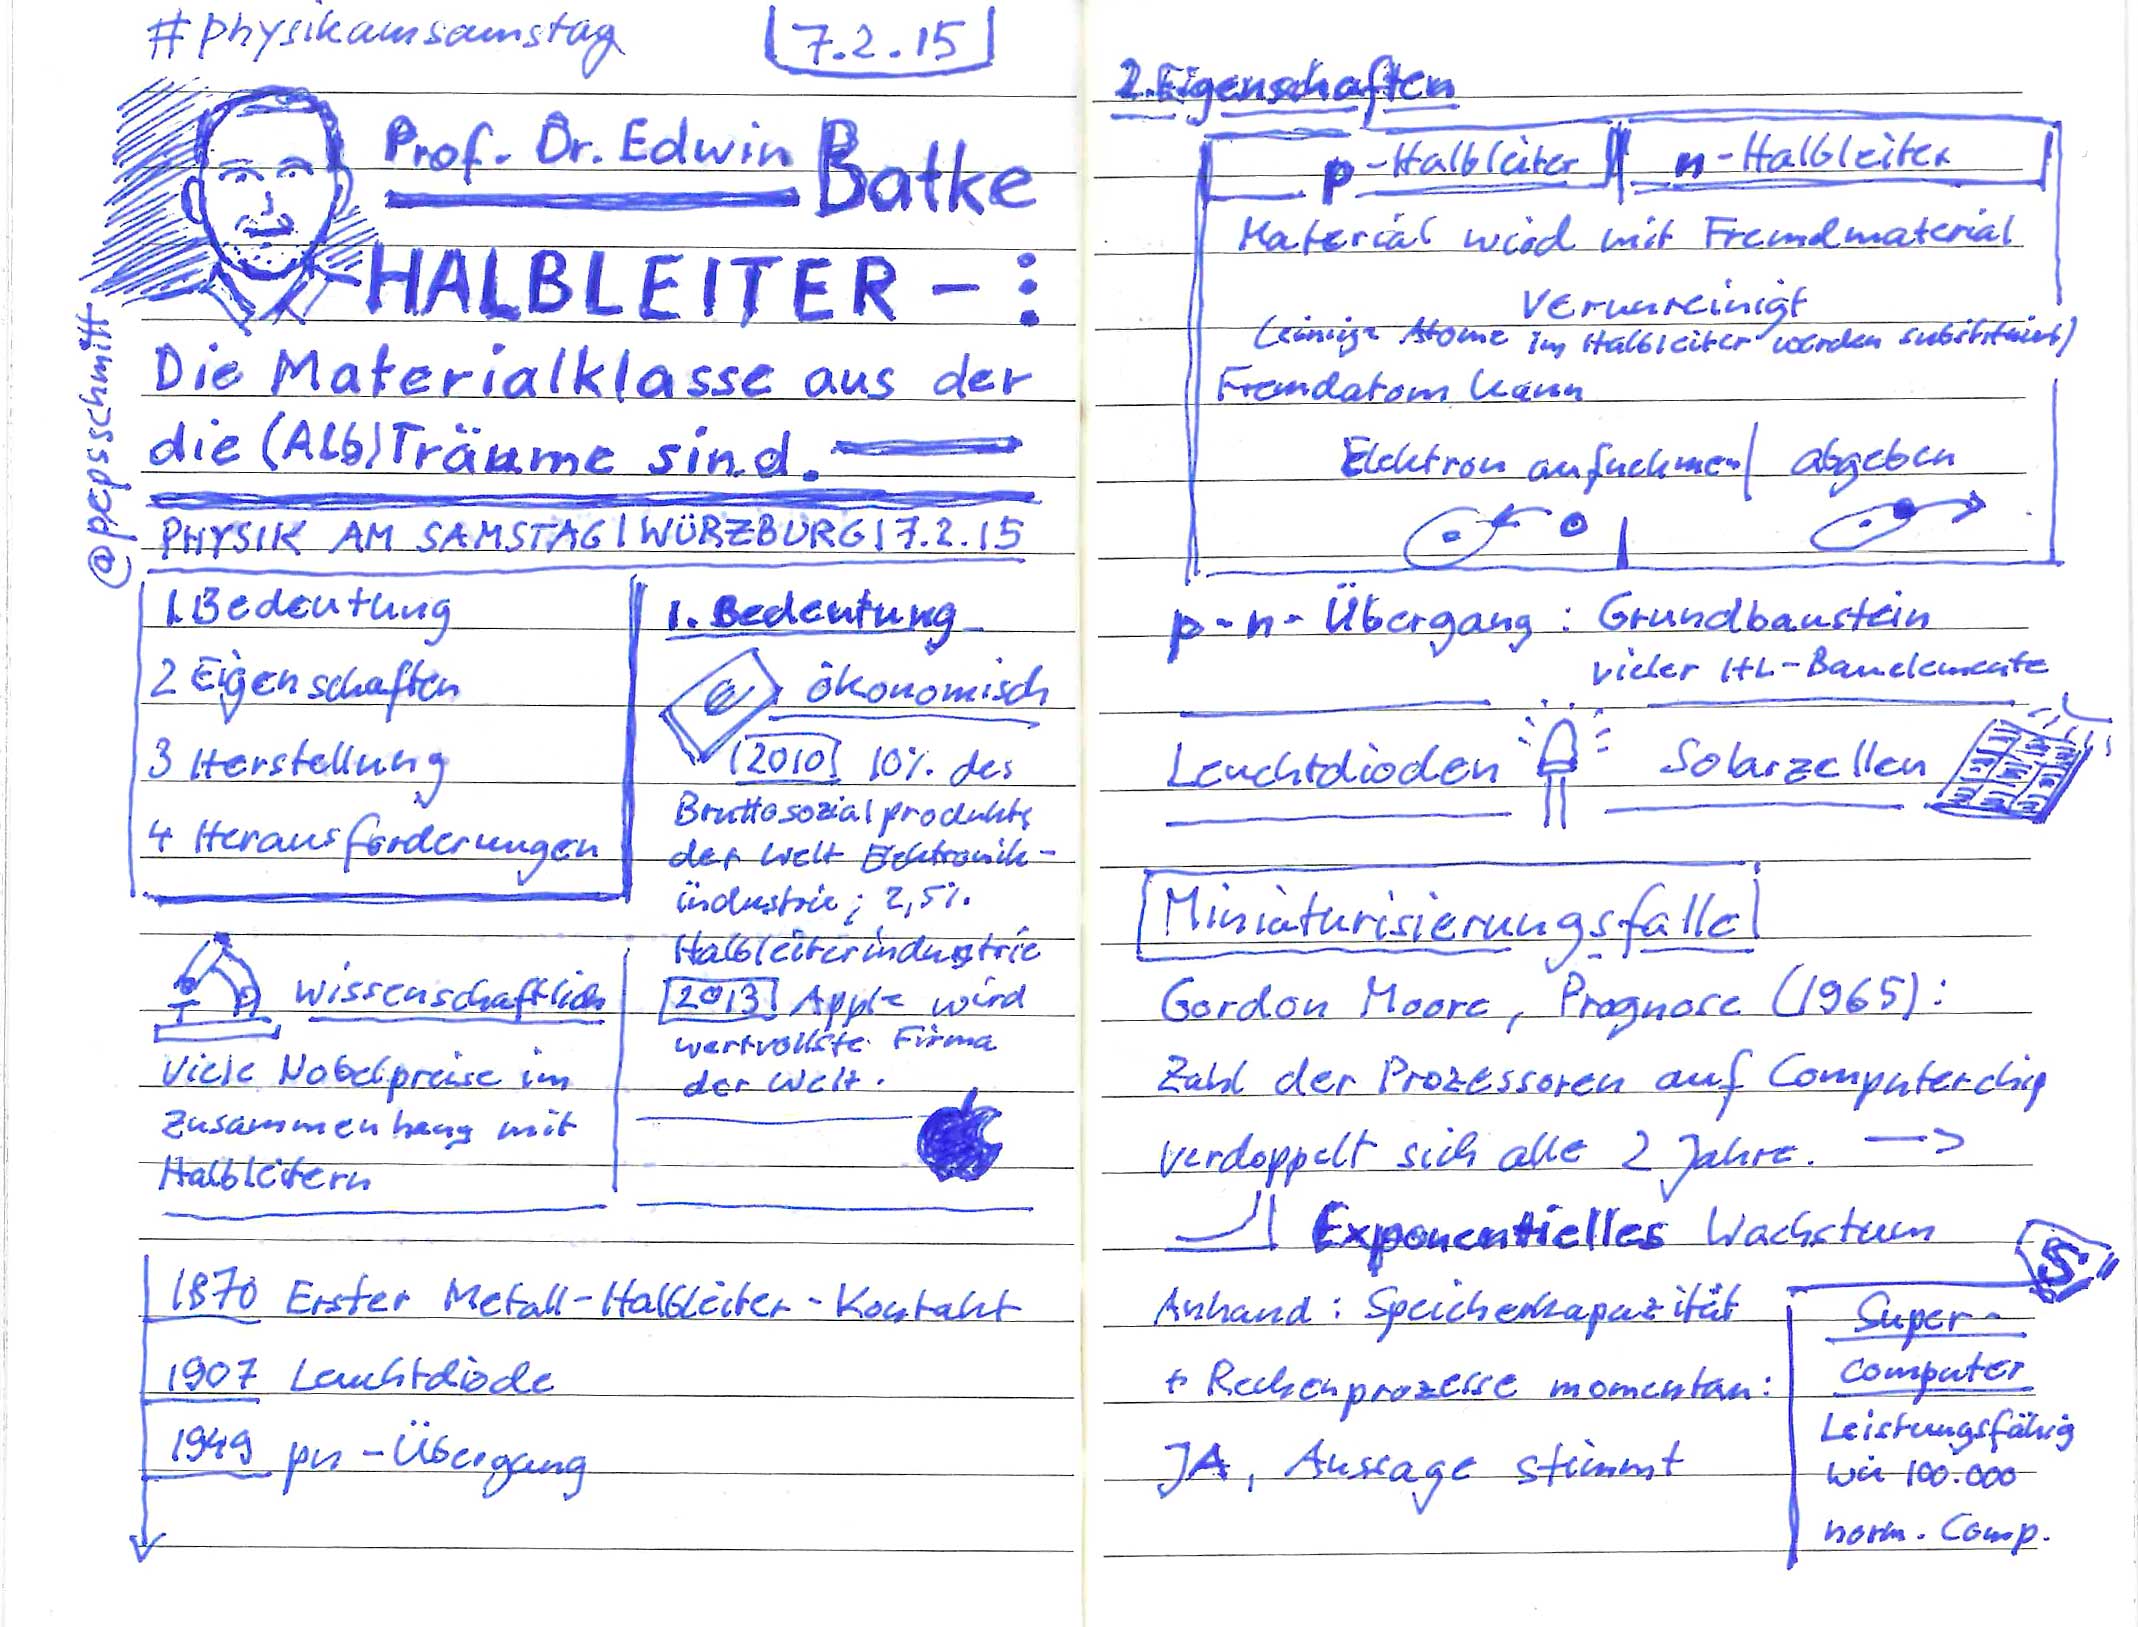 #physikamsamstag
7.2.15
Prof. Dr. Edwin Batke
HALBLEITER - :
Die Materialklasse aus der
die (Alb)Träume sind.
@pepsschmitt
PHYSIK AM SAMSTAG | WÜRZBURG | 7.2.15
1. Bedeutung
2 Eigenschaften
3 Herstellung
4 Herausforderungen
1. Bedeutung
€
ökonomisch
2010 10% des
Bruttosozialprodukts
der Welt Elektronik-
industrie; 2,5%
Halbleiterindustrie
2013 Apple wird
wertvollste Firma
der Welt.
wissenschaftlich
Viele Nobelpreise im
Zusammenhang mit
Halbleitern
1870 Erster Metall-Halbleiter-Kontakt
1907 Leuchtdiode
1949 pn-Übergang
2. Eigenschaften
p-Halbleiter
n-Halbleiter
Material wird mit Fremdmaterial
verunreinigt
(einige Atome im Halbleiter werden substituiert)
Fremdatom kann
Elektron aufnehmen | abgeben
p-n-Übergang : Grundbaustein
vieler HL-Bauelemente
Leuchtdioden
Solarzellen
Miniaturisierungsfalle
Gordon Moore, Prognose (1965):
Zahl der Prozessoren auf Computerchip
verdoppelt sich alle 2 Jahre. →
Exponentielles Wachstum
Anhand : Speicherkapazität
+ Rechenprozesse momentan:
JA, Aussage stimmt
S
Super-
computer
Leistungsfähig
wie 100.000
norm. Comp.